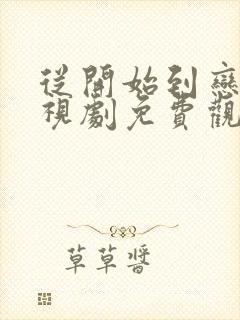 從開始到戀
視劇免費觀
草草醬